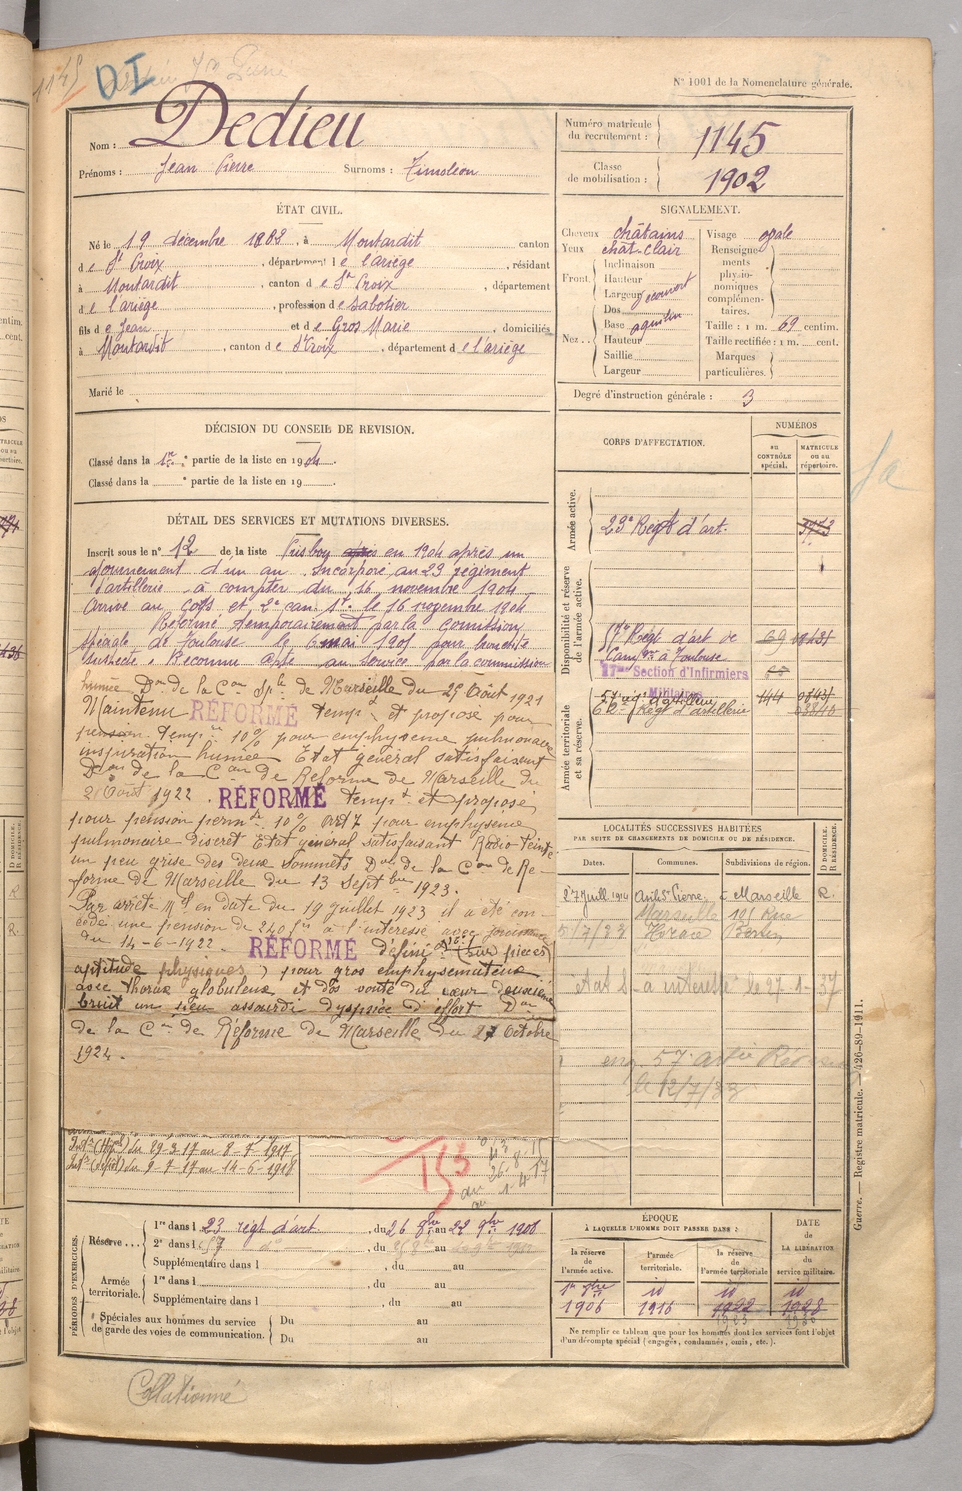 1145
DI
N° 1001 de la Nomenclature générale.
Nom : Dedieu
Prénoms : Jean Pierre Surnoms : Timoléon
Numéro matricule du recrutement : 1145
Classe de mobilisation : 1902
ÉTAT CIVIL.
Né le 19 décembre 1882, à Montardit canton
de St Croix, département de l'ariège, résidant
à Montardit, canton de Ste Croix, département
de l'ariège, profession de Sabotier
fils de Jean et de Gros Marie, domiciliés
à Montardit, canton de Ste Croix, département de l'ariège
Marié le
SIGNALEMENT.
Cheveux châtains
Yeux chât-clair
Front Inclinaison
Hauteur
Largeur
Nez Dos
Base aquilin
Hauteur
Saillie
Largeur
Visage ovale
Renseignements physionomiques complémentaires.
Taille : 1 m. 69 centim.
Taille rectifiée : 1 m. cent.
Marques particulières.
Degré d'instruction générale : 3
DÉCISION DU CONSEIL DE REVISION.
Classé dans la 1re partie de la liste en 1904.
Classé dans la e partie de la liste en 19
DÉTAIL DES SERVICES ET MUTATIONS DIVERSES.
Inscrit sous le n° 12 de la liste en 1904 après un
ajournement d'un an. Incorporé au 23 régiment
d'artillerie à compter du 16 novembre 1904
Arrivé au Corps et 2e can. St. le 16 novembre 1904
Réformé temporairement par la Comission
spéciale de Toulouse le 6 mai 1905 pour bronchite
suspecte. Reconnu apte au service par la commission
humée Don de la Con Sple de Marseille du 25 Août 1921
Maintenu RÉFORMÉ tempre et proposé pour
pension tempre 10% pour emphysème pulmonaire
inspiration humée Etat général satisfaisant
Don de la Con de Réforme de Marseille du
21 Août 1922. RÉFORMÉ tempre et proposé
pour pension permte 10% art 7 pour emphysème
pulmonaire discret Etat général satisfaisant Radio Teinte
un peu grise des deux sommets Don de la Con de Ré-
forme de Marseille du 13 Septbre 1923.
Par arrêté Mel en date du 19 juillet 1923 il a été con-
cédé une pension de 240 frs à l'intéressé avec jouissance
du 14-6-1922. RÉFORMÉ définif (sur pièces)
aptitude physiques) pour gros emphysemateux
avec thorax globuleux et dos vouté du cœur deuxième
bruit un peu assourdi dyspnée d'effort Don
de la Con de Réforme de Marseille du 27 Octobre
1924.
CORPS D'AFFECTATION.
NUMÉROS
AU CONTRÔLE spécial.
MATRICULE ou au répertoire.
Armée active.
23e Régt d'art.
Disponibilité et réserve de l'armée active.
57e Régt d'art de
Camp à Toulouse
69
17me Section d'Infirmiers
Militaires
Armée territoriale et sa réserve.
57e régt d'artillerie
Régt d'artillerie
144
LOCALITÉS SUCCESSIVES HABITÉES
PAR SUITE DE CHANGEMENTS DE DOMICILE OU DE RÉSIDENCE.
Dates. Communes. Subdivisions de région.
D DOMICILE. R RÉSIDENCE.
27 Juill. 1914 Marseille R.
Marseille 101 Rue
Horace Bertin
etat S à intéressé le 27-1-37
57 artie
le 12/7/33
Intre (Hôpal) du 29-3-17 au 8-7-1917
Intre (siège) du 9-7-17 au 14-6-1918
153
au 1-4-17
PÉRIODES D'EXERCICES.
Réserve 1re dans l 23 régt d'art. , du 26 8bre au 22 9bre 1908
2e dans l 57 , du au
Supplémentaire dans l , du au
Armée territoriale. 1re dans l , du au
Supplémentaire dans l , du au
Spéciales aux hommes du service de garde des voies de communication. Du au
Du au
ÉPOQUE
À LAQUELLE L'HOMME DOIT PASSER DANS :
la réserve de l'armée active. l'armée territoriale. la réserve de l'armée territoriale
DATE DE LA LIBÉRATION du service militaire.
1er 9bre id id id
1906 1916 1922 1928
Ne remplir ce tableau que pour les hommes dont les services font l'objet d'un décompte spécial (engagés, condamnés, omis, etc.).
Guerre. — Registre matricule. — 426-89-1911.
Collationné